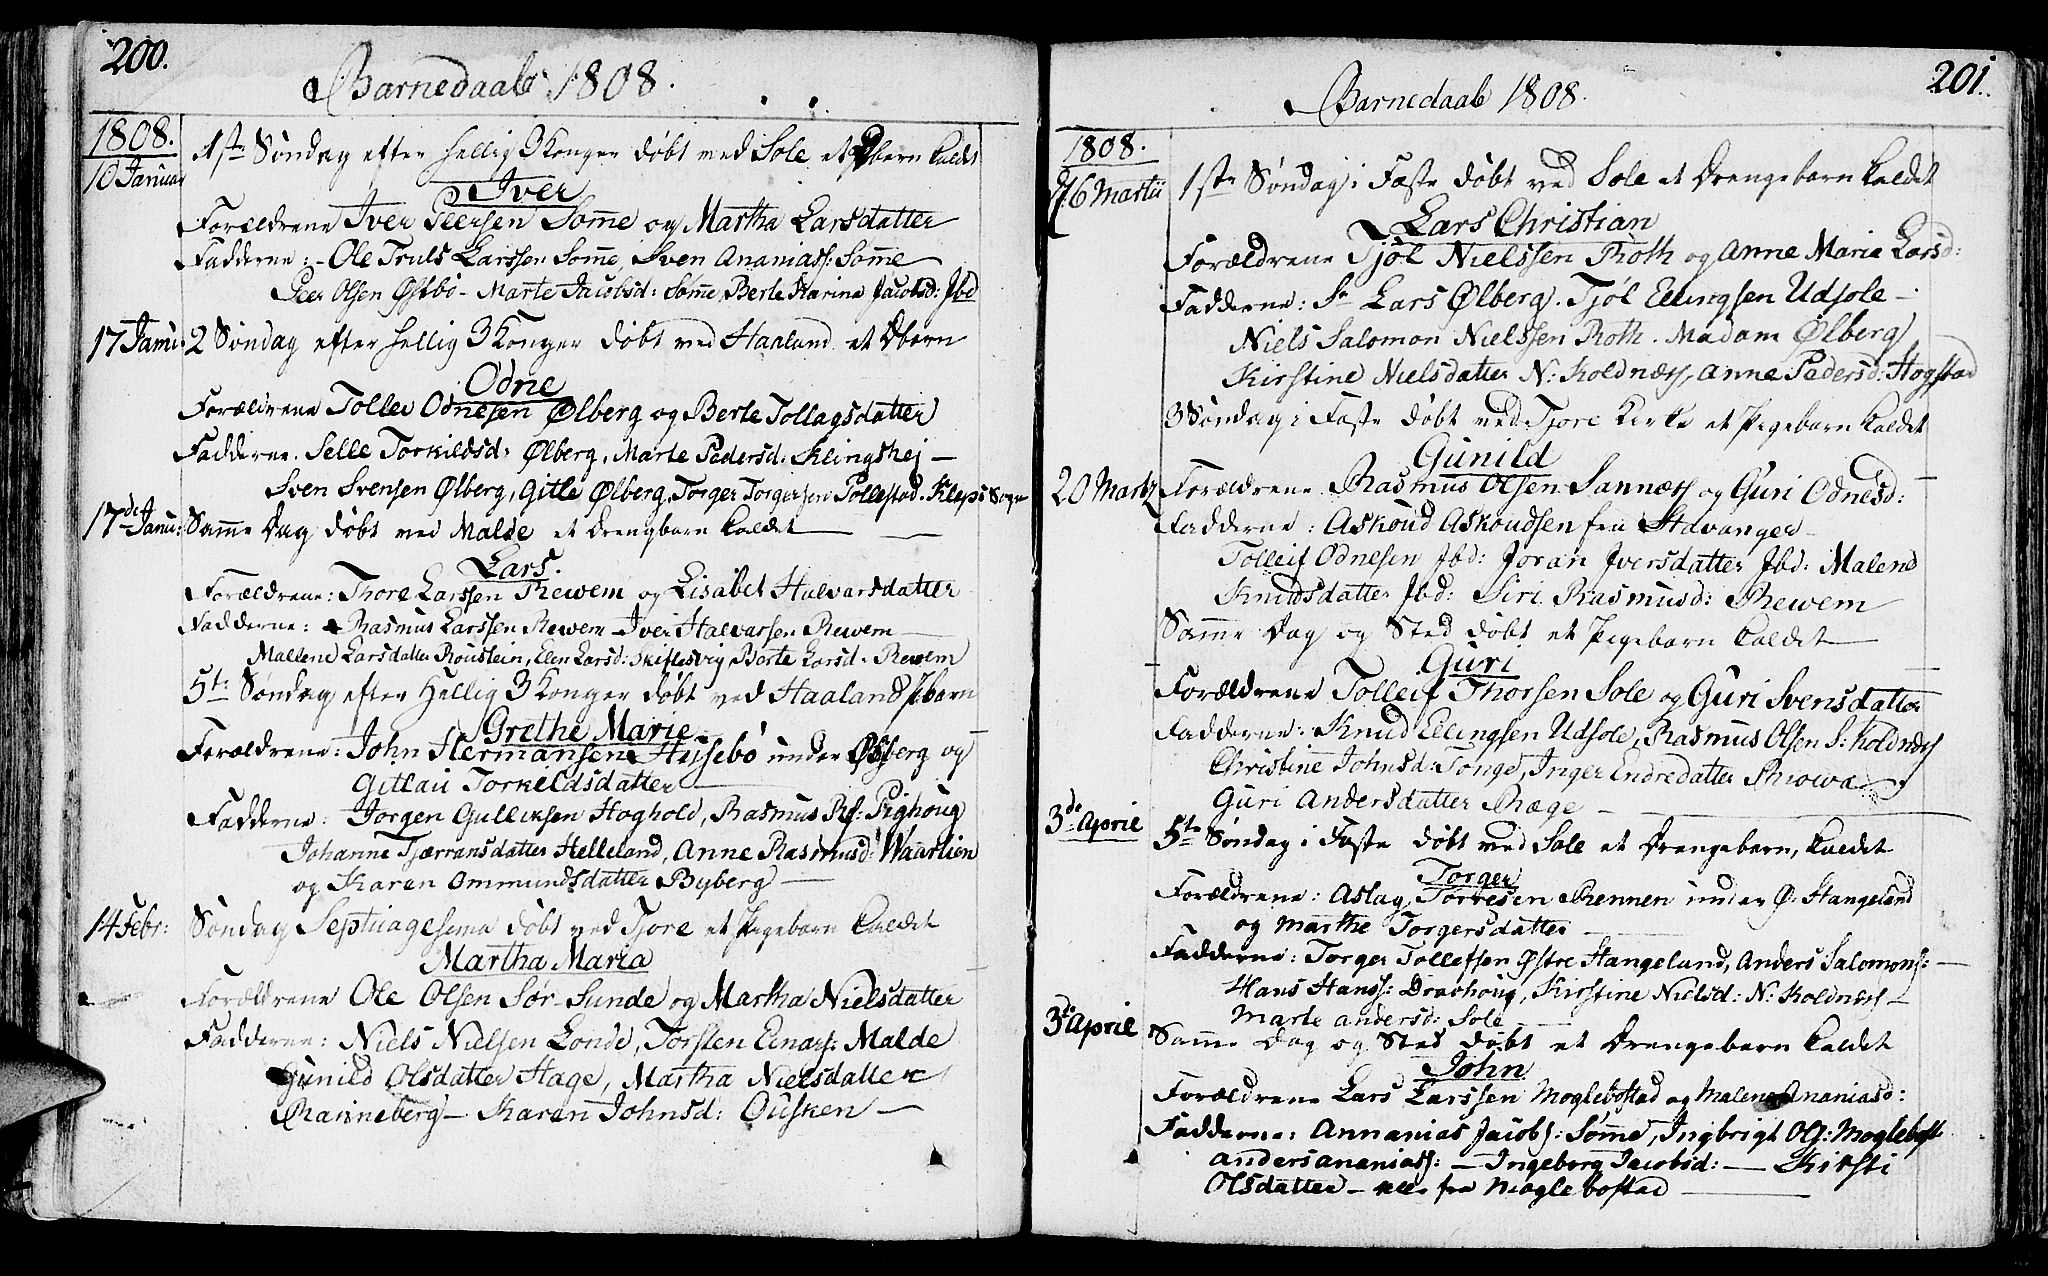 200.
Barnedaab 1808.
1808.
10 Januar
1ste Søndag efter hellig 3 Konger døbt ved Sole et Dbarn kaldt
Iver
Forældrene Iver Peersen Somme og Martha Larsdatter
Fadderne: - Ole Truls Larssen Somme, Sven Ananiass: Somme
Peer Olsen Østbø - Marte Jacobsd: Sømme, Berte Karina Jacobsd: Jbd
17 Janu: 2 Søndag efter hellig 3 Konger døbt ved Haaland et Dbarn
Odne
Forældrene Tollev Odnesen Ølberg og Berte Tollagsdatter
Fadderne. Selle Torkildsd: Ølberg, Marte Pedersd: Klingshej -
Sven Svensen Ølberg, Gitle Ølberg, Torger Torgersen Pollestad. Kleps Sogn
17de Janu: Samme Dag døbt ved Malde et Drengbarn kaldet
Lars.
Forældrene: Thore Larssen Rewem og Lisabet Halvarsdatter
Fadderne: Rasmus Larssen Rewem - Iver Halvarsen Rewem
Mallene Larsdatter Roustein, Elen Larsd: Skiflesvig Berte Larsd: Rewem
5te Søndag efter Hellig 3 Konger døbt ved Haaland Pbarn
Grethe Marie
Forældrene: John Hermansen Husebø under Ølberg og
Gitlau Torkeldsdatter
Fadderne: Jorgen Gulleksen Hoghold, Rasmus Rs: Pighoug
Johanne Tjærransdatter Helleland, Anne Rasmusd: Waarlien
og Karen Ommundsdatter Byberg
14 Febr: Søndag Septuagesima døbt ved Tjore et Pigebarn kaldet
Martha Maria
Forældrene Ole Olsen Sør-Sunde og Martha Nielsdatter
Fadderne: Niels Nielsen Londe, Torsten Einars: Malde
Gunild Olsdatter Hage, Martha Nielsdatter
Ranneberg - Karen Johnsd: Ousken -
201.
Barnedaab 1808.
1808.
d 6 Martii
1ste Søndag i Faste døbt ved Sole et Drengebarn kaldet
Lars Christian
Forældrene Tjøl Nielssen Roth og Anne Marie Larsd:
Fadderne: Sr Lars Ølberg. Tjøl Ellingsen Udsole -
Niels Salomon Nielssen Roth. Madam Ølberg
Kirstine Nielsdatter N: Koldnæs, Anne Pedersd: Hogstad
3 Søndag i Faste døbt ved Tjore Kirke et Pigebarn kaldet
Gunild
20 Martz Forældrene Rasmus Olsen Sannæss og Guri Odnesd:
Fadderne: Askoud Askoudsen fra Stavanger -
Tolleif Odnesen Jbd: Joran Iversdatter Jbd: Malend
Knudsdatter Jbd: Siri Rasmusd: Rewem
Samme Dag og Sted døbt et Pigebarn kaldet
Guri
Forældrene Tolleif Thorsen Sole og Guri Svensdatter
Fadderne: Knud Ellingsen Udsole, Rasmus Olsen S: Koldnæs
Christine Johnsd: Tonge, Inger Endredatter Rewa
Guri Andersdatter Ræge -
3de April
5te Søndag i Faste døbt ved Sole et Drengebarn, kaldet
Torger
Forældrene: Aslag Torresen Rennen under Ø: Stangeland
og Marthe Torgersdatter
Fadderne: Torger Tollefsen Østre Stangeland, Anders Salomons: -
Hans Hanss: Dravhoug, Kirstine Nielsd: N: Koldnæs -
Marte Andersd: Sole
3de April Samme Dag og Sted døbt et Drengebarn kaldet
John
Forældrene Lars Larssen Moglebostad og Malene Ananiasd:
Fadderne: Annanias Jacobs: Sømme, Ingbrigt Ols: Moglebost
Anders Ananiass: - Ingeborg Jacobsd: - Kirsti
Olsdatter - alle fra Moglebostad